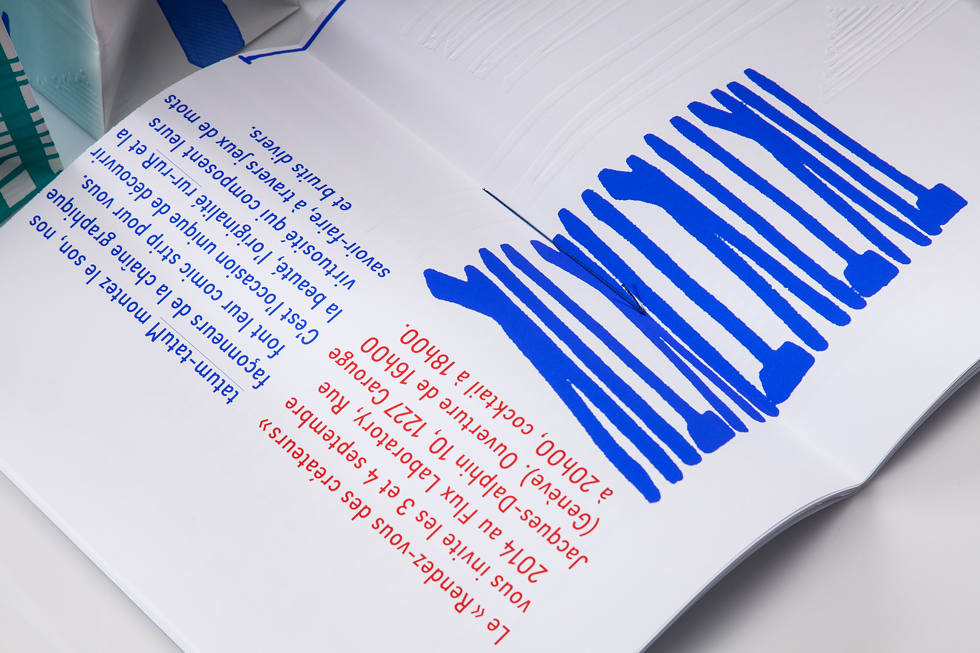 Le «Rendez-vous des créateurs»
vous invite les 3 et 4 septembre
2014 au Flux Laboratory, Rue
Jacques-Dalphin 10, 1227 Carouge
(Genève). Ouverture de 16h00
à 20h00, cocktail à 18h00.
tatum-tatuM montez le son, nos
façonneurs de la chaîne graphique
font leur comic strip pour vous.
C'est l'occasion unique de découvrir
la beauté, l'originalité rur-ruR et la
virtuosité qui composent leurs
savoir-faire, à travers jeux de mots
et bruits divers.